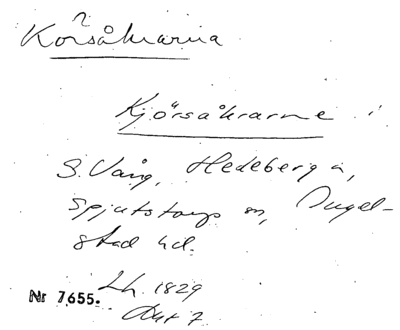 ?
Körsåkrarna
Kjörsåkrarne i
S. Vång, Hedeberga,
Spjutstorps sn, Ingel-
stad hd.
Lh. 1829
Nr 7655. Akt 7